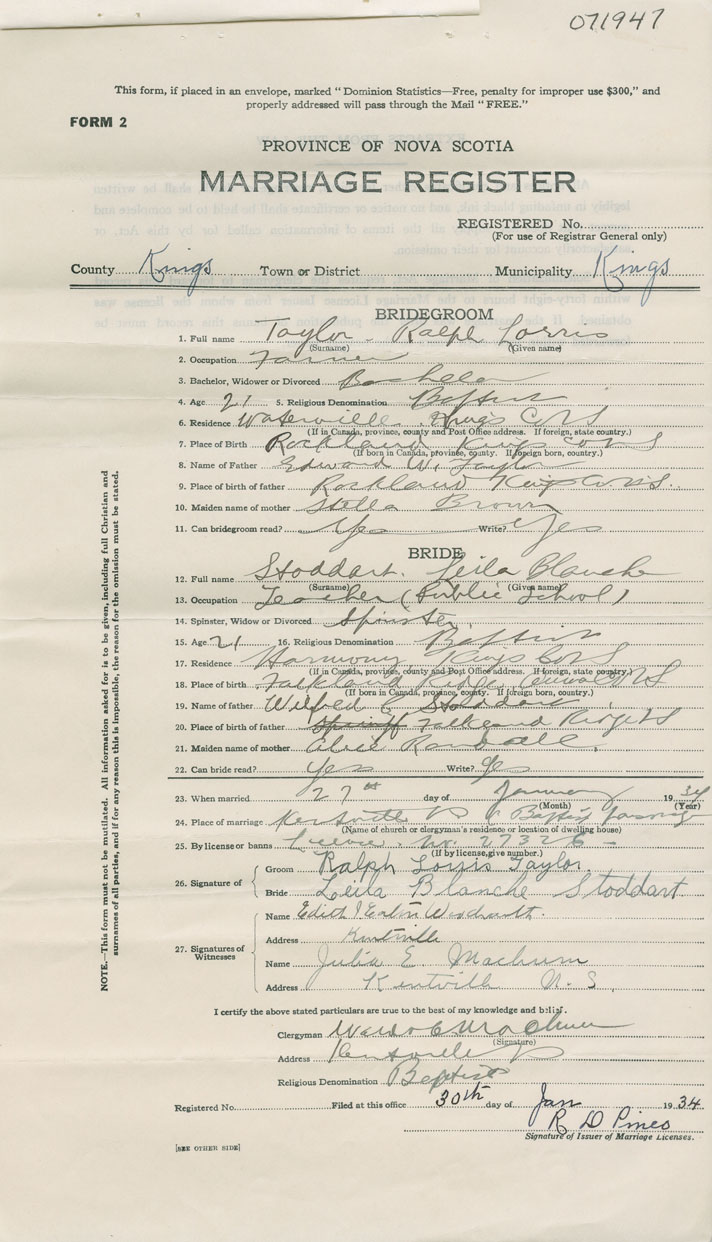 071947
This form, if placed in an envelope, marked "Dominion Statistics—Free, penalty for improper use $300," and
properly addressed will pass through the Mail "FREE."
FORM 2
PROVINCE OF NOVA SCOTIA
MARRIAGE REGISTER
REGISTERED No.
(For use of Registrar General only)
County Kings Town or District Municipality Kings
BRIDEGROOM
1. Full name Taylor Ralph Lorris
(Surname) (Given name)
2. Occupation Farmer
3. Bachelor, Widower or Divorced Bachelor
4. Age 21 5. Religious Denomination Baptist
6. Residence Waterville Kings Co NS
(If in Canada, province, county and Post Office address. If foreign, state country.)
7. Place of Birth Rockland Kings Co NS
(If born in Canada, province, county. If foreign born, country.)
8. Name of Father Edward W. Taylor
9. Place of birth of father Rockland Kings Co NS.
10. Maiden name of mother Stella Brown
11. Can bridegroom read? Yes Write? Yes
BRIDE
12. Full name Stoddart. Leila Blanche
(Surname) (Given name)
13. Occupation Teacher (Public School)
14. Spinster, Widow or Divorced Spinster.
15. Age 21 16. Religious Denomination Baptist
17. Residence Harmony Kings Co NS
(If in Canada, province, county and Post Office address. If foreign, state country.)
18. Place of birth Falkland Ridge NS
(If born in Canada, province, county. If foreign born, country.)
19. Name of father Wilfred Stoddart
20. Place of birth of father Falkland Ridge NS
21. Maiden name of mother Alice Randall.
22. Can bride read? Yes Write? Yes
23. When married 27th day of January 1934
(Month) (Year)
24. Place of marriage Kentville NS Baptist Parsonage
(Name of church or clergyman's residence or location of dwelling house)
25. By license or banns License. No. 27326
(If by license, give number.)
26. Signature of
Groom Ralph Lorris Taylor
Bride Leila Blanche Stoddart
27. Signatures of Witnesses
Name Edith Eaton Woodworth.
Address Kentville
Name Julia E. Machum
Address Kentville N.S.
I certify the above stated particulars are true to the best of my knowledge and belief.
Clergyman Machum
(Signature)
Address Kentville NS
Religious Denomination Baptist
Registered No. Filed at this office 30th day of Jan 1934
R D Pineo
Signature of Issuer of Marriage Licenses.
[SEE OTHER SIDE]
NOTE.—This form must not be mutilated. All information asked for is to be given, including full Christian and
surnames of all parties, and if for any reason this is impossible, the reason for the omission must be stated.